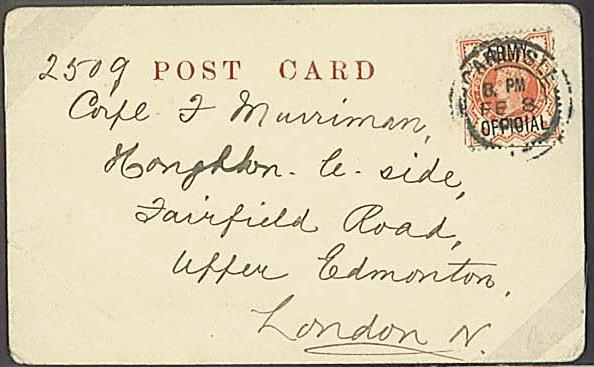 2509 POST CARD
ARMY
8. PM
FE 8
OFFICIAL
Corpl F Murriman,
Houghton-le-side,
Fairfield Road,
Upper Edmonton,
London N.